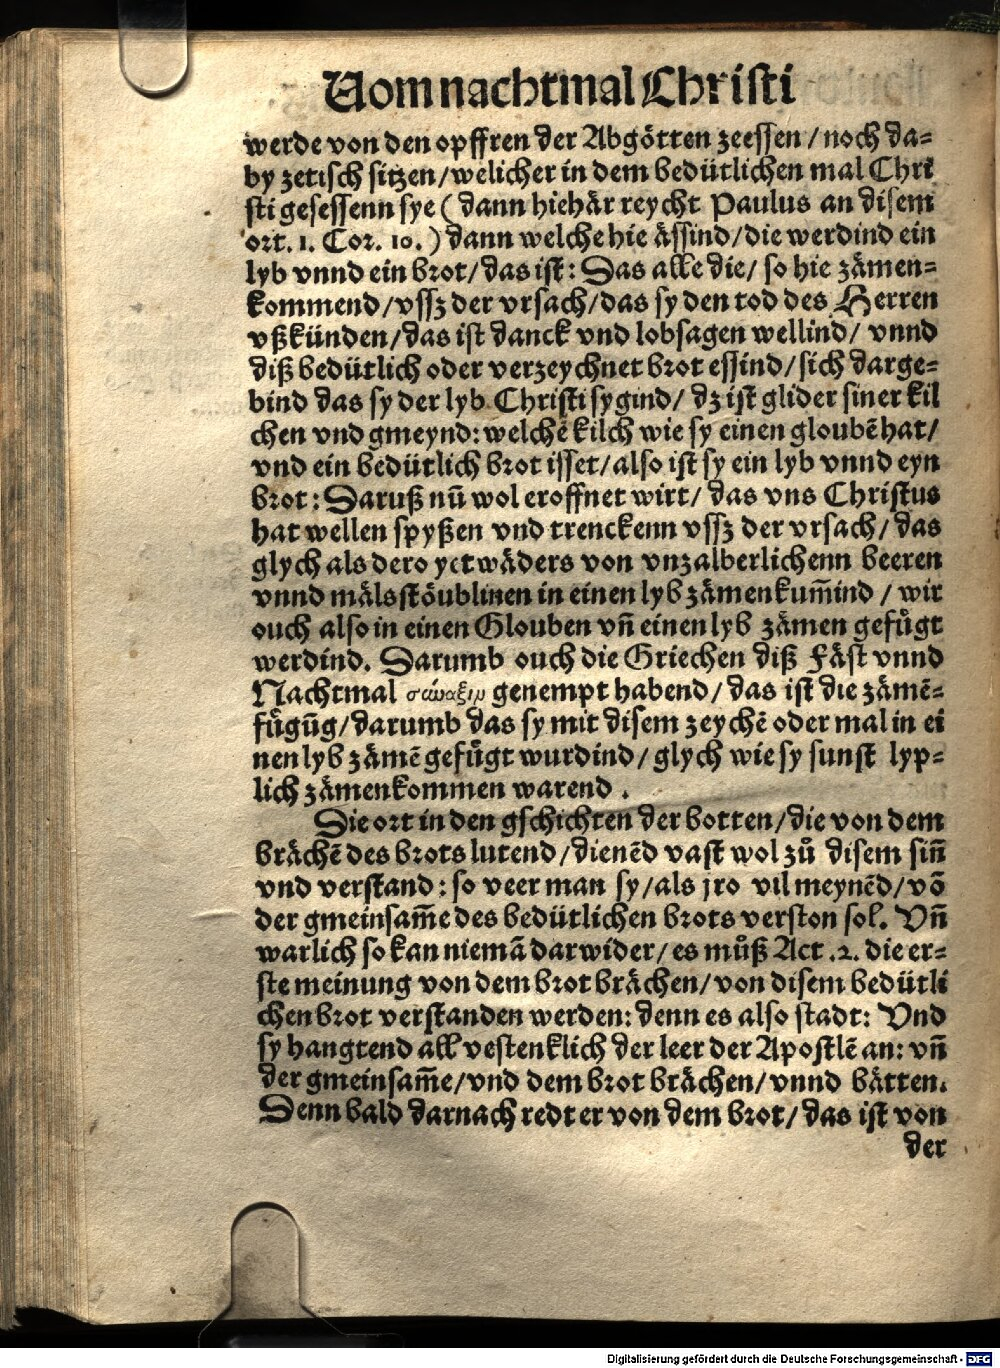 Vom nachtmal Christi
werde von den opffren der Abgötten zeessen / noch da=
by zetisch sitzen / welicher in dem bedütlichen mal Chri
sti gesessenn sye ( dann hiehär reycht Paulus an disem
ort. 1. Cor. 10. ) dann welche hie ässind / die werdind ein
lyb vnnd ein brot / das ist : Das alle die / so hie zämen=
kommend / vssz der vrsach / das sy den tod des Herren
vßkünden / das ist danck vnd lobsagen wellind / vnnd
diß bedütlich oder verzeychnet brot essind / sich darge=
bind das sy der lyb Christi sygind / dz ist glider siner kil
chen vnd gmeynd : welchē kilch wie sy einen gloubē hat /
vnd ein bedütlich brot isset / also ist sy ein lyb vnnd eyn
brot : Daruß nū wol eroffnet wirt / das vns Christus
hat wellen spyßen vnd trenckenn vssz der vrsach / das
glych als dero yetwäders von vnzalberlichenn beeren
vnnd mälsstöublinen in einen lyb zämenkum̄ind / wir
ouch also in einen Glouben vn̄ einen lyb zämen gefuͤgt
werdind. Darumb ouch die Griechen diß Fäst vnnd
Nachtmal σύναξιν genempt habend / das ist die zämē=
fuͤgūg / darumb das sy mit disem zeychē oder mal in ei
nen lyb zämē gefuͤgt wurdind / glych wie sy sunst lyp=
lich zämenkommen warend .
Die ort in den gschichten der botten / die von dem
brächē des brots lutend / dienēd vast wol zuͦ disem sin̄
vnd verstand : so veer man sy / als jro vil meynēd / vō
der gmeinsam̄e des bedütlichen brots verston sol. Vn̄
warlich so kan niemā darwider / es muͦß Act .2. die er=
ste meinung von dem brot brächen / von disem bedütli
chen brot verstanden werden : denn es also stadt : Vnd
sy hangtend all vestenklich der leer der Apostlē an : vn̄
der gmeinsam̄e / vnd dem brot brächen / vnnd bätten.
Denn bald darnach redt er von dem brot / das ist von
der
Digitalisierung gefördert durch die Deutsche Forschungsgemeinschaft - DFG